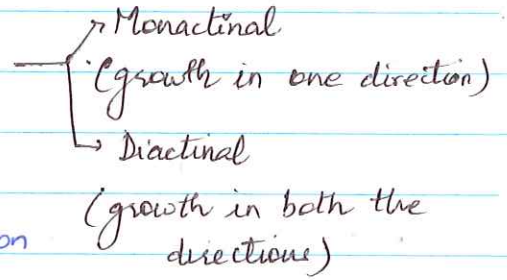 Monactinal
(growth in one direction)
Diactinal
(growth in both the
on
directions)